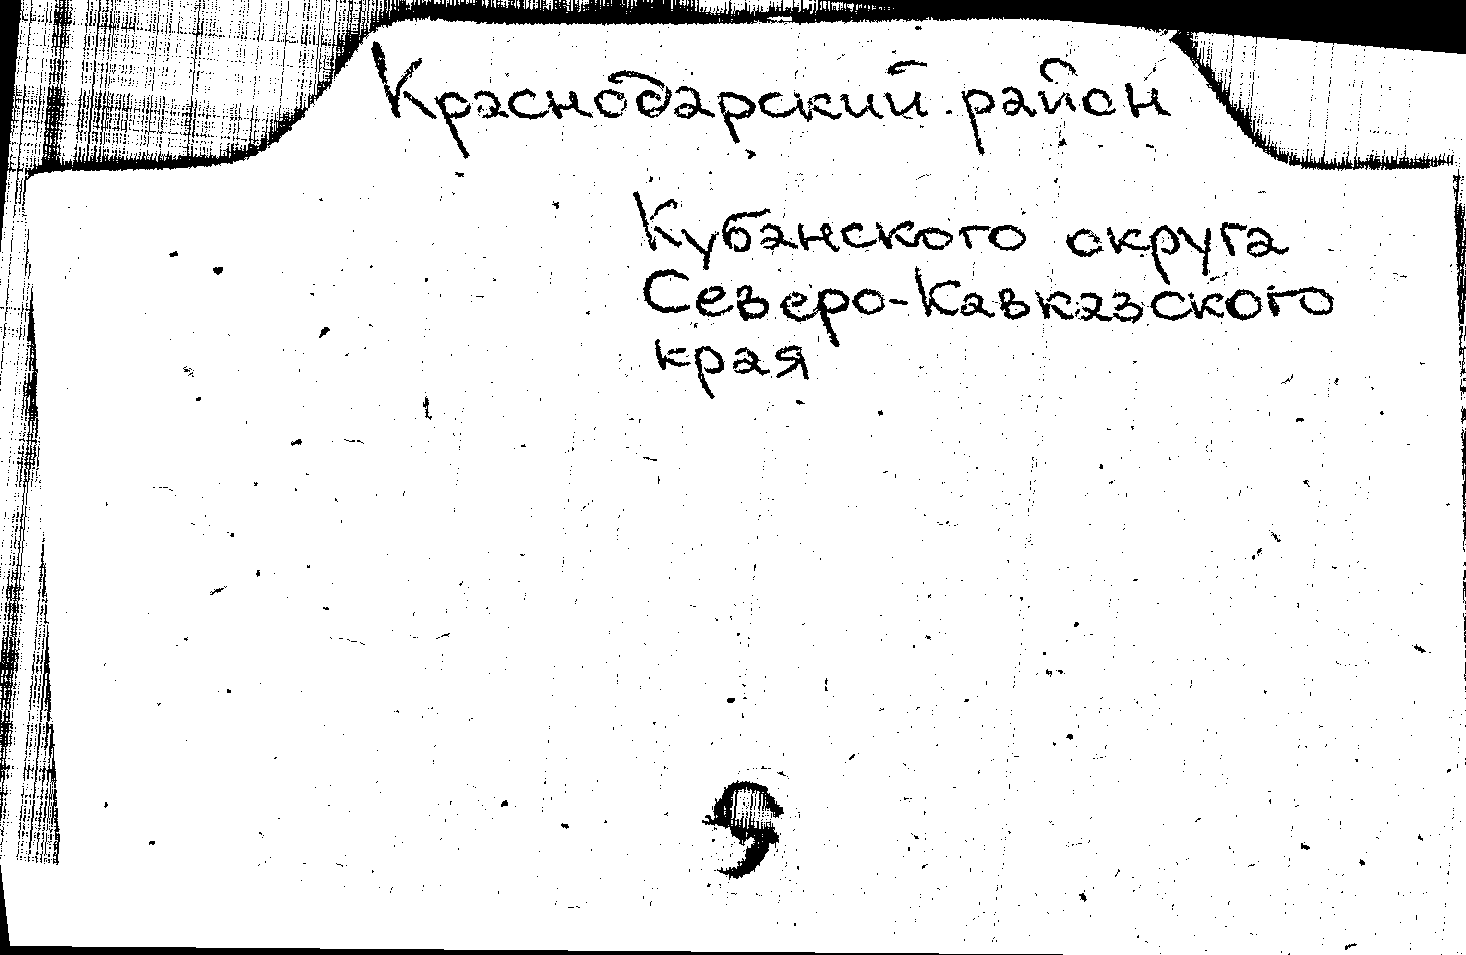 Краснодарский район
Кубанского округа
Северо-Кавказского
края